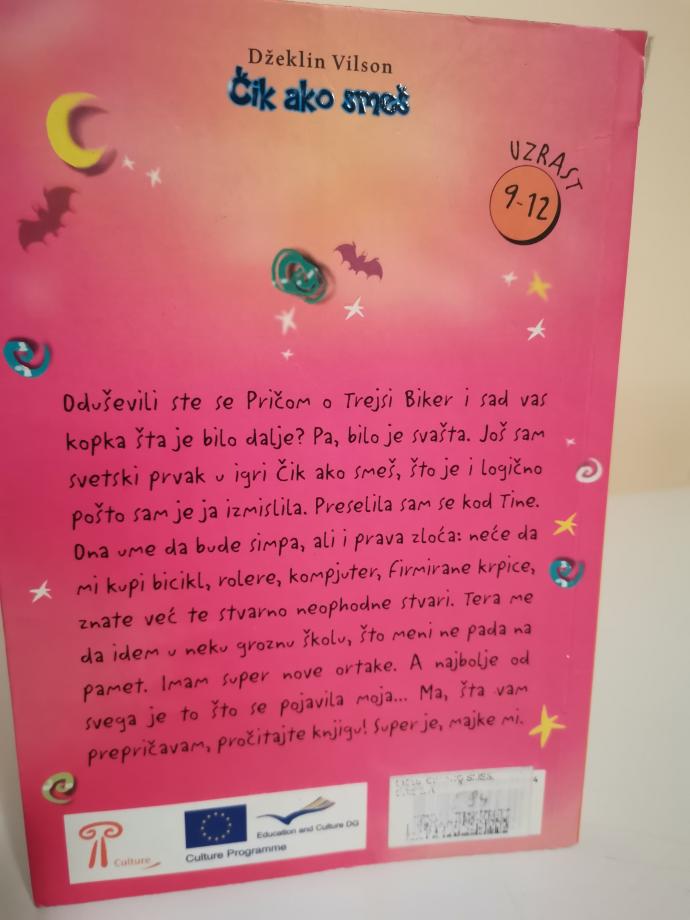 Džeklin Vilson
Čik ako smeš
UZRAST
9-12
Oduševili ste se Pričom o Trejsi Biker i sad vas
kopka šta je bilo dalje? Pa, bilo je svašta. Još sam
svetski prvak u igri Čik ako smeš, što je i logično
pošto sam je ja izmislila. Preselila sam se kod Tine.
Ona ume da bude simpa, ali i prava zloća: neće da
mi kupi bicikl, rolere, kompjuter, firmirane krpice,
znate već te stvarno neophodne stvari. Tera me
da idem u neku groznu školu, što meni ne pada na
pamet. Imam super nove ortake. A najbolje od
svega je to što se pojavila moja... Ma, šta vam
prepričavam, pročitajte knjigu! Super je, majke mi.
Culture
Education and Culture DG
Culture Programme